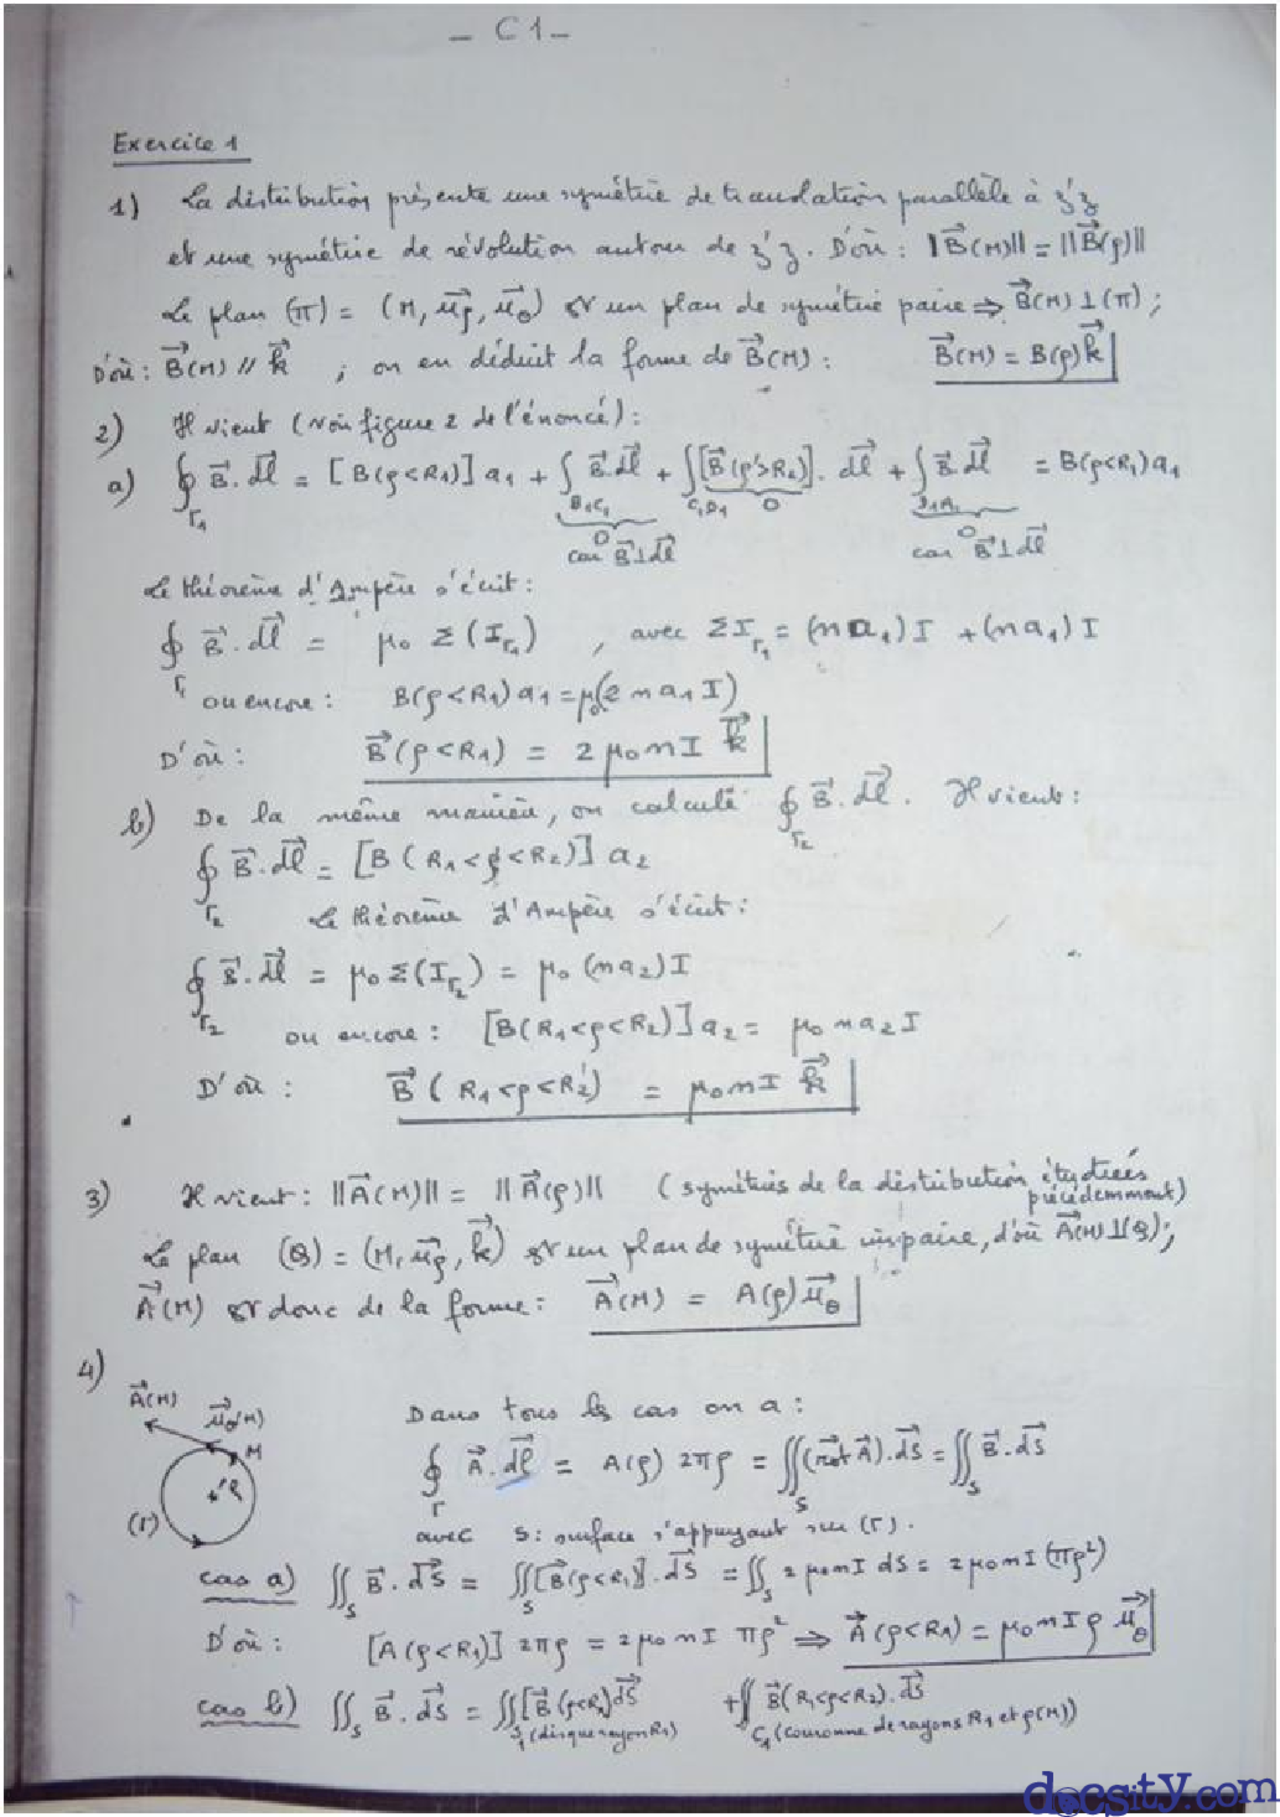 - C1 -
Exercice 1
1) La distribution présente une symétrie de translation parallèle à z'z
et une symétrie de révolution autour de z'z. D'où : ||B⃗(M)|| = ||B⃗(ρ)||
Le plan (π) = (M, u⃗ρ, u⃗θ) est un plan de symétrie paire ⇒ B⃗(M) ⊥ (π) ;
D'où : B⃗(M) // k⃗ ; on en déduit la forme de B⃗(M) : B⃗(M) = B(ρ) k⃗
2) Il vient (voir figure 2 de l'énoncé) :
a) ∮Γ1 B⃗.dl⃗ = [B(ρ<R1)] a1 + ∫B1C1 B⃗.dl⃗ + ∫C1D1 [B⃗(ρ>R2)].dl⃗ + ∫D1A1 B⃗.dl⃗ = B(ρ<R1) a1
0 0 0
car B⃗⊥dl⃗ car B⃗⊥dl⃗
Le théorème d'Ampère s'écrit :
∮Γ1 B⃗.dl⃗ = μ0 Σ(IΓ1) , avec ΣIΓ1 = (n a1) I + (n a1) I
ou encore : B(ρ<R1) a1 = μ0(2 n a1 I)
D'où : B⃗(ρ<R1) = 2 μ0 n I k⃗
b) De la même manière, on calcule ∮Γ2 B⃗.dl⃗. Il vient :
∮Γ2 B⃗.dl⃗ = [B(R1<ρ<R2)] a2
Le théorème d'Ampère s'écrit :
∮Γ2 B⃗.dl⃗ = μ0 Σ(IΓ2) = μ0 (n a2) I
ou encore : [B(R1<ρ<R2)] a2 = μ0 n a2 I
D'où : B⃗(R1<ρ<R2) = μ0 n I k⃗
3) Il vient : ||A⃗(M)|| = ||A⃗(ρ)|| (symétries de la distribution étudiées
précédemment)
Le plan (Q) = (M, u⃗ρ, k⃗) est un plan de symétrie impaire, d'où A⃗(M) ⊥ (Q) ;
A⃗(M) est donc de la forme : A⃗(M) = A(ρ) u⃗θ
4)
A⃗(M) u⃗θ(M) M ρ (Γ)
Dans tous les cas on a :
∮Γ A⃗.dl⃗ = A(ρ) 2πρ = ∬S (rot⃗ A⃗).dS⃗ = ∬S B⃗.dS⃗
avec S : surface s'appuyant sur (Γ).
cas a) ∬S B⃗.dS⃗ = ∬S [B⃗(ρ<R1)].dS⃗ = ∬S 2 μ0 n I dS = 2 μ0 n I (πρ²)
D'où : [A(ρ<R1)] 2πρ = 2 μ0 n I πρ² ⇒ A⃗(ρ<R1) = μ0 n I ρ u⃗θ
cas b) ∬S B⃗.dS⃗ = ∬S1 [B⃗(ρ<R1)] dS⃗ + ∬C1 B⃗(R1<ρ<R2).dS⃗
(disque rayon R1) (couronne de rayons R1 et ρ(M))
docsity.com